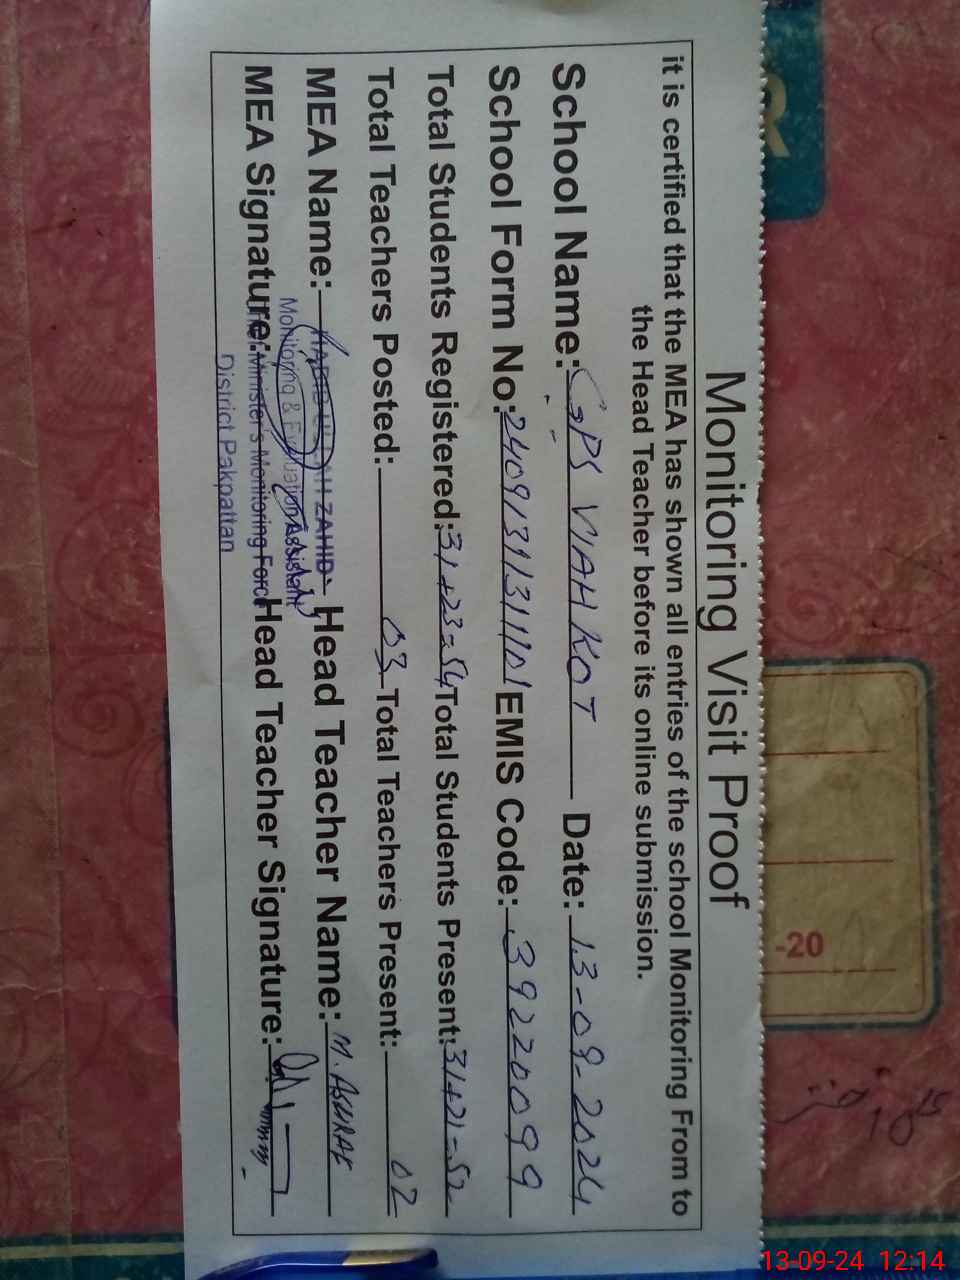 Monitoring Visit Proof
it is certified that the MEA has shown all entries of the school Monitoring From to
the Head Teacher before its online submission.
School Name: GPS VIAH KOT Date: 13-09-2024
School Form No: EMIS Code: 39220099
Total Students Registered: 31+23=54 Total Students Present: 31+21=52
Total Teachers Posted: 03 Total Teachers Present: 02
MEA Name: ZAHID Head Teacher Name: M. ASHRAF
Monitoring & Evaluation Assistant
MEA Signature: Minister's Monitoring Force Head Teacher Signature:
District Pakpattan
-20
13-09-24 12:14